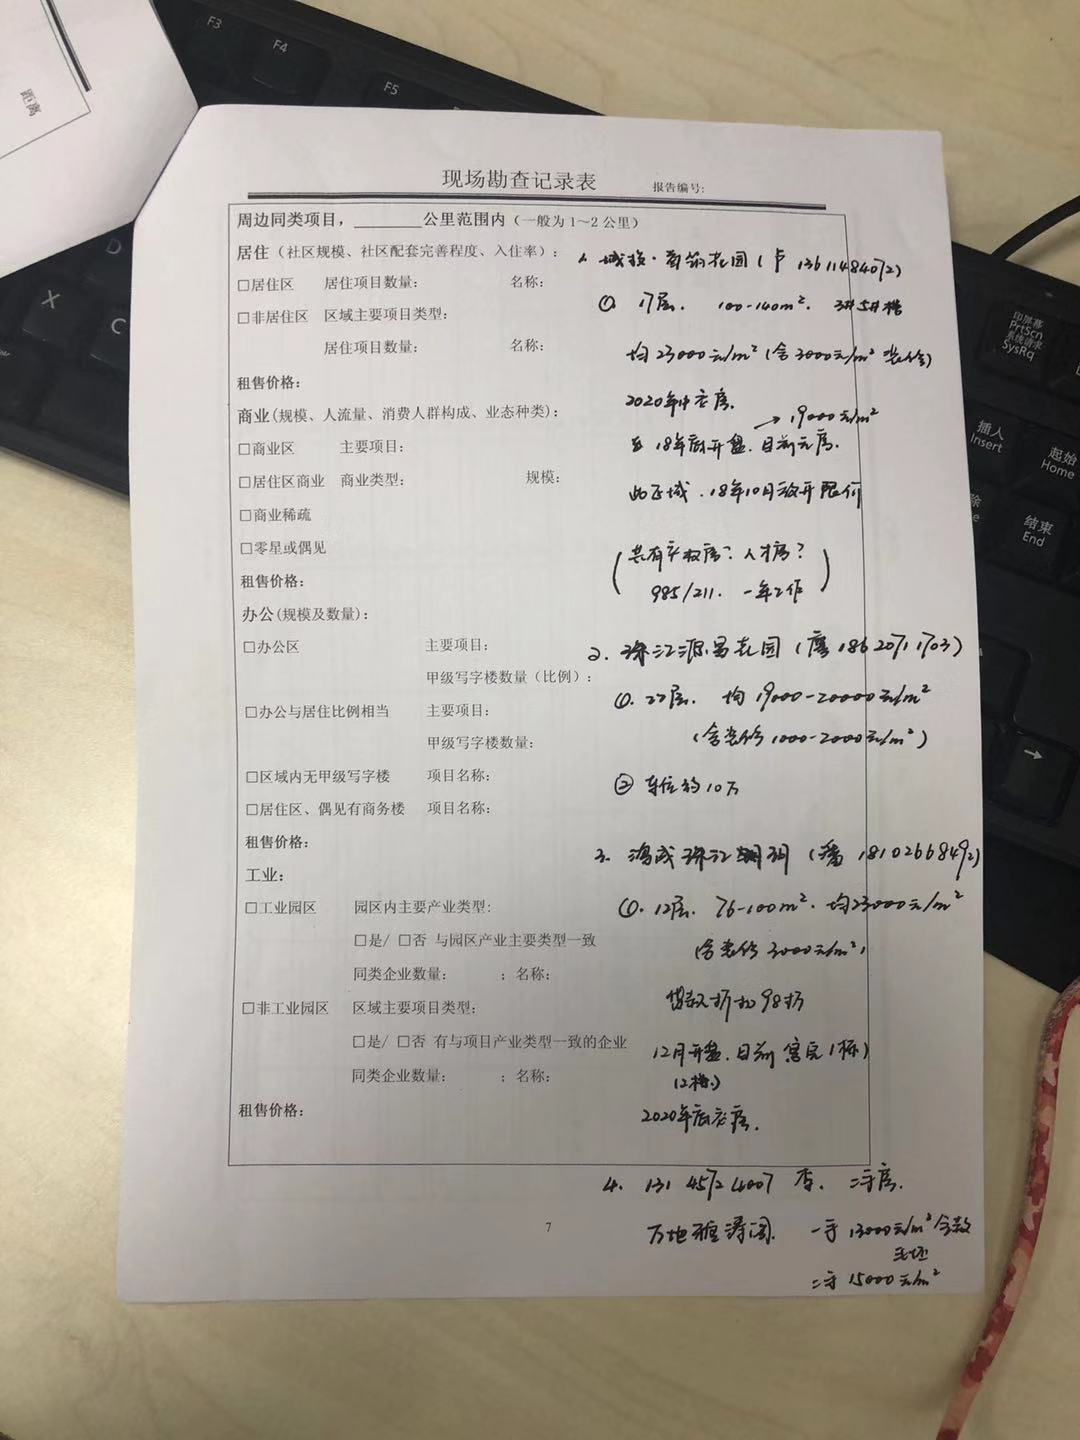 距离
F3
F4
F5
D
X
C
印屏幕
PrtScn
系统请求
SysRq
插入
Insert
起始
Home
结束
End
→
现场勘查记录表
报告编号:
周边同类项目，________公里范围内（一般为1～2公里）
居住（社区规模、社区配套完善程度、入住率）:
□居住区 居住项目数量: 名称:
□非居住区 区域主要项目类型:
居住项目数量: 名称:
租售价格:
商业(规模、人流量、消费人群构成、业态种类):
□商业区 主要项目:
□居住区商业 商业类型: 规模:
□商业稀疏
□零星或偶见
租售价格:
办公(规模及数量):
□办公区 主要项目:
甲级写字楼数量（比例）:
□办公与居住比例相当 主要项目:
甲级写字楼数量:
□区域内无甲级写字楼 项目名称:
□居住区、偶见有商务楼 项目名称:
租售价格:
工业:
□工业园区 园区内主要产业类型:
□是/ □否 与园区产业主要类型一致
同类企业数量: ；名称:
□非工业园区 区域主要项目类型:
□是/ □否 有与项目产业类型一致的企业
同类企业数量: ；名称:
租售价格:
1. 城投·花园（卢 13611484072）
① 17层. 100-140m². 3#5#楼
均23000元/m²（含3000元/m² 装修）
2020年中交房.
→19000元/m²
18年底开盘. 目前无房.
此区域. 18年10月放开限价
（共有产权房？人才房？
985/211. 一年工作）
2. 珠江源昌花园（廖 18620711703）
①. 22层. 均 19000-20000元/m²
（含装修 1000-2000元/m²）
② 车位约10万
3. 鸿成珠江（潘 18102668492）
①. 12层. 76-100m². 均23000元/m²
含装修 3000元/m²,
贷款折扣98折
12月开盘. 目前 1栋）
(2栋.)
2020年底交房.
4. 13145724007 李. 二手房.
万地雅涛阁. 一手 13000元/m² 含教
毛坯
二手 15000元/m²
7